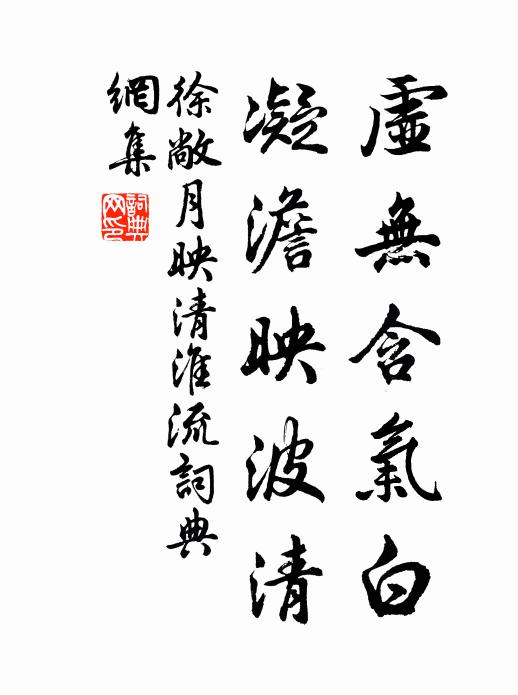 虛無含氣白
凝澹映波清
徐敞月映清淮流詞典
網集
詞典網印